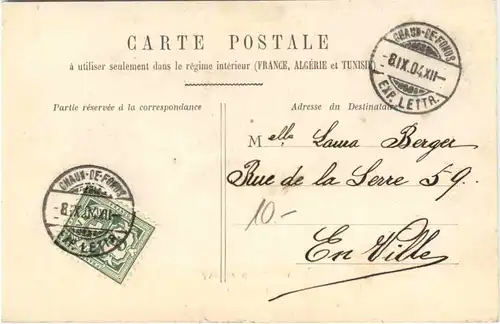 CARTE POSTALE
à utiliser seulement dans le régime intérieur (FRANCE, ALGÉRIE et TUNISIE)
Partie réservée à la correspondance
Adresse du Destinataire
CHAUX-DE-FONDS
-8.IX.04.XII-
EXP. LETTR.
Melle Laura Berger
Rue de la Serre 59.
10.-
En Ville
CHAUX-DE-FONDS
-8.IX.04.XII-
EXP. LETTR.